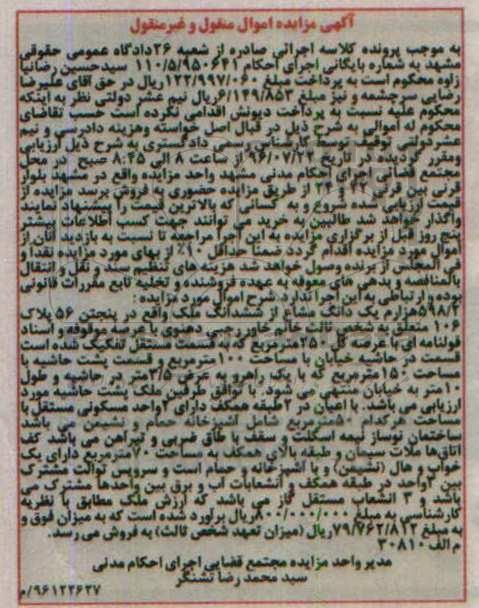 آگهی مزایده اموال منقول و غیرمنقول
به موجب پرونده کلاسه اجرائی صادره از شعبه ۲۶دادگاه عمومی حقوقی
مشهد به شماره بایگانی اجرای احکام ۱۱۰/۵/۹۵۰۶۴۱ سیدحسین رضانیا
زاوه محکوم است به پرداخت مبلغ ۱۲۲/۹۹۷/۰۶۰ریال در حق آقای علیرضا
رضایی سرچشمه و نیز مبلغ ۶/۱۴۹/۸۵۳ریال نیم عشر دولتی نظر به اینکه
محکوم علیه نسبت به پرداخت دیونش اقدامی نکرده است حسب تقاضای
محکوم له اموالی به شرح ذیل در قبال اصل خواسته وهزینه دادرسی و نیم
عشردولتی توقیف توسط کارشناس رسمی دادگستری به شرح ذیل ارزیابی
ومقرر گردیده در تاریخ ۹۶/۰۷/۲۳ از ساعت ۸ الی ۸:۴۵ صبح در محل
مجتمع قضائی اجرای احکام مدنی مشهد واحد مزایده واقع در مشهد بلوار
قرنی بین قرنی ۲۲ و ۲۴ از طریق مزایده حضوری به فروش برسد مزایده از
قیمت ارزیابی شده شروع و به کسانی که بالاترین قیمت را پیشنهاد نمایند
واگذار خواهد شد طالبین به خرید می توانند جهت کسب اطلاعات بیشتر
پنج روز قبل از برگزاری مزایده به این اجرا مراجعه تا نسبت به بازدید آنان از
اموال مورد مزایده اقدام گردد ضمنا حداقل ۱۰٪ از بهای مورد مزایده نقدا و
فی المجلس از برنده وصول خواهد شد هزینه های تنظیم سند و نقل و انتقال
بالمناصفه و بدهی های معوقه به عهده فروشنده و تخلیه تابع مقررات قانونی
بوده و ارتباطی به این اجرا ندارد شرح اموال مورد مزایده :
۵۹۸/۲هزارم یک دانگ مشاع از ششدانگ ملک واقع در پنجتن ۵۶ پلاک
۱۰۶ متعلق به شخص ثالث خانم خاور رجبی دهنوی با عرصه موقوفه و اسناد
قولنامه ای با عرصه کل ۲۵۰مترمربع که به قسمت مستقل تفکیک شده است
قسمت در حاشیه خیابان با مساحت ۱۰۰مترمربع و قسمت پشت حاشیه با
مساحت ۱۵۰مترمربع که با یک راهرو به عرض ۲/۵متر در حاشیه و طول
۱۰متر به خیابان منتهی می شود. با توافق طرفین ملک پشت حاشیه مورد
ارزیابی می باشد. با اعیان در ۲طبقه همکف دارای ۲واحد مسکونی مستقل با
مساحت هرکدام ۵۰مترمربع شامل آشپزخانه حمام و نشیمن می باشد
ساختمان نوساز نیمه اسکلت و سقف با طاق ضربی و تیرآهن می باشد کف
اتاقها ملات سیمان و طبقه بالای همکف به مساحت ۷۰مترمربع دارای یک
خواب و هال (نشیمن) و با آشپزخانه و حمام است و سرویس توالت مشترک
بین ۲واحد در طبقه همکف و انشعابات آب و برق بین واحدها مشترک می
باشد و ۳ انشعاب مستقل گاز می باشد که ارزش ملک مطابق با نظریه
کارشناسی به مبلغ ۸۰۰/۰۰۰/۰۰۰ریال برآورد شده است که به میزان فوق و
به مبلغ ۷۹/۷۶۲/۸۱۲ریال (میزان تعهد شخص ثالث) به فروش می رسد.
م الف ۳۰۸۱۰
مدیر واحد مزایده مجتمع قضایی اجرای احکام مدنی
سید محمد رضا تشنگر
۹۶۱۲۲۶۲۷/م